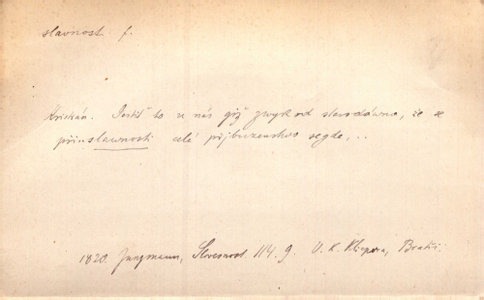 slavnost f.
Krišán. Jestiť to u nás giž zwyk od starodáwna, že se
při slawnosti celé přjbuzenstwo segde, ..
1820 Jungmann, Slovesnost 114. 9. V. K. Klicpera, Bratři.